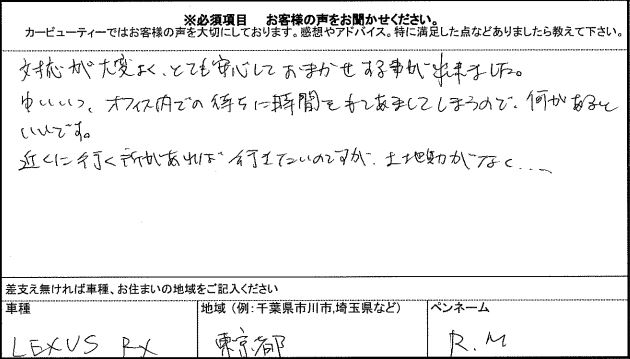 ※必須項目　お客様の声をお聞かせください。
カービューティーではお客様の声を大切にしております。感想やアドバイス。特に満足した点などありましたら教えて下さい。
対応が大変よく、とても安心しておまかせする事が出来ました。
ゆいいつ、オフィス内での待ちに時間をもてあましてしまうので、何かあると
いいです。
近くに行く所があれば行きたいのですが、土地勘がなく...
差支え無ければ車種、お住まいの地域をご記入ください
車種　地域（例：千葉県市川市,埼玉県など）　ペンネーム
LEXUS RX　東京都　R.M